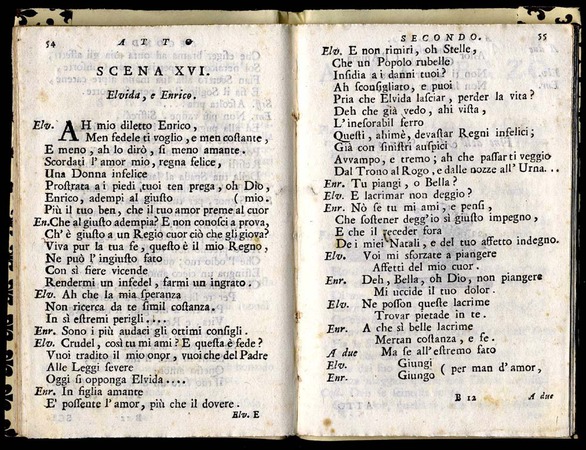 54 ATTO
SCENA XVI.
Elvida, e Enrico.
Elv. AH mio diletto Enrico,
Men fedele ti voglio, e men costante,
E meno, ah lo dirò, si meno amante.
Scordati l'amor mio, regna felice,
Una Donna infelice
Prostrata a i piedi tuoi ten prega, oh Dio,
Enrico, adempi al giusto (mio.
Più il tuo ben, che il tuo amor preme al cuor
En. Che al giusto adempia? E non conosci a prova,
Ch'è giusto a un Regio cuor ciò che gli giova?
Viva pur la tua fe, questo è il mio Regno,
Ne può l'ingiusto fato
Con sì fiere vicende
Rendermi un infedel, farmi un ingrato.
Elv. Ah che la mia speranza
Non ricerca da te simil costanza.
In sì estremi perigli....
Enr. Sono i più audaci gli ottimi consigli.
Elv. Crudel, così tu mi ami? E questa è fede?
Vuoi tradito il mio onor, vuoi che del Padre
Alle Leggi severe
Oggi si opponga Elvida....
Enr. In figlia amante
E' possente l'amor, più che il dovere.
Elv. E
SECONDO. 55
Elv. E non rimiri, oh Stelle,
Che un Popolo rubello
Insidia a i danni tuoi?
Ah sconsigliato, e puoi
Pria che Elvida lasciar, perder la vita?
Deh che già vedo, ahi vista,
L'inesorabil ferro
Questi, ahimè, devastar Regni infelici;
Già con sinistri auspici
Avvampo, e tremo; ah che passarti veggio
Dal Trono al Rogo, e dalle nozze all'Urna...
Enr. Tu piangi, o Bella?
Elv. E lacrimar non deggio?
Enr. Nò se tu mi ami, e pensi,
Che sostener degg'io sì giusto impegno,
E che il receder fora
De i miei Natali, e del tuo affetto indegno.
Elv. Voi mi sforzate a piangere
Affetti del mio cuor.
Enr. Deh, Bella, oh Dio, non piangere
Mi uccide il tuo dolor.
Elv. Ne posson queste lacrime
Trovar pietade in te.
Enr. A che sì belle lacrime
Mertan costanza, e fe.
A due Ma se all'estremo fato
Elv. Giungi
Enr. Giungo (per man d'amor,
B 12 A due